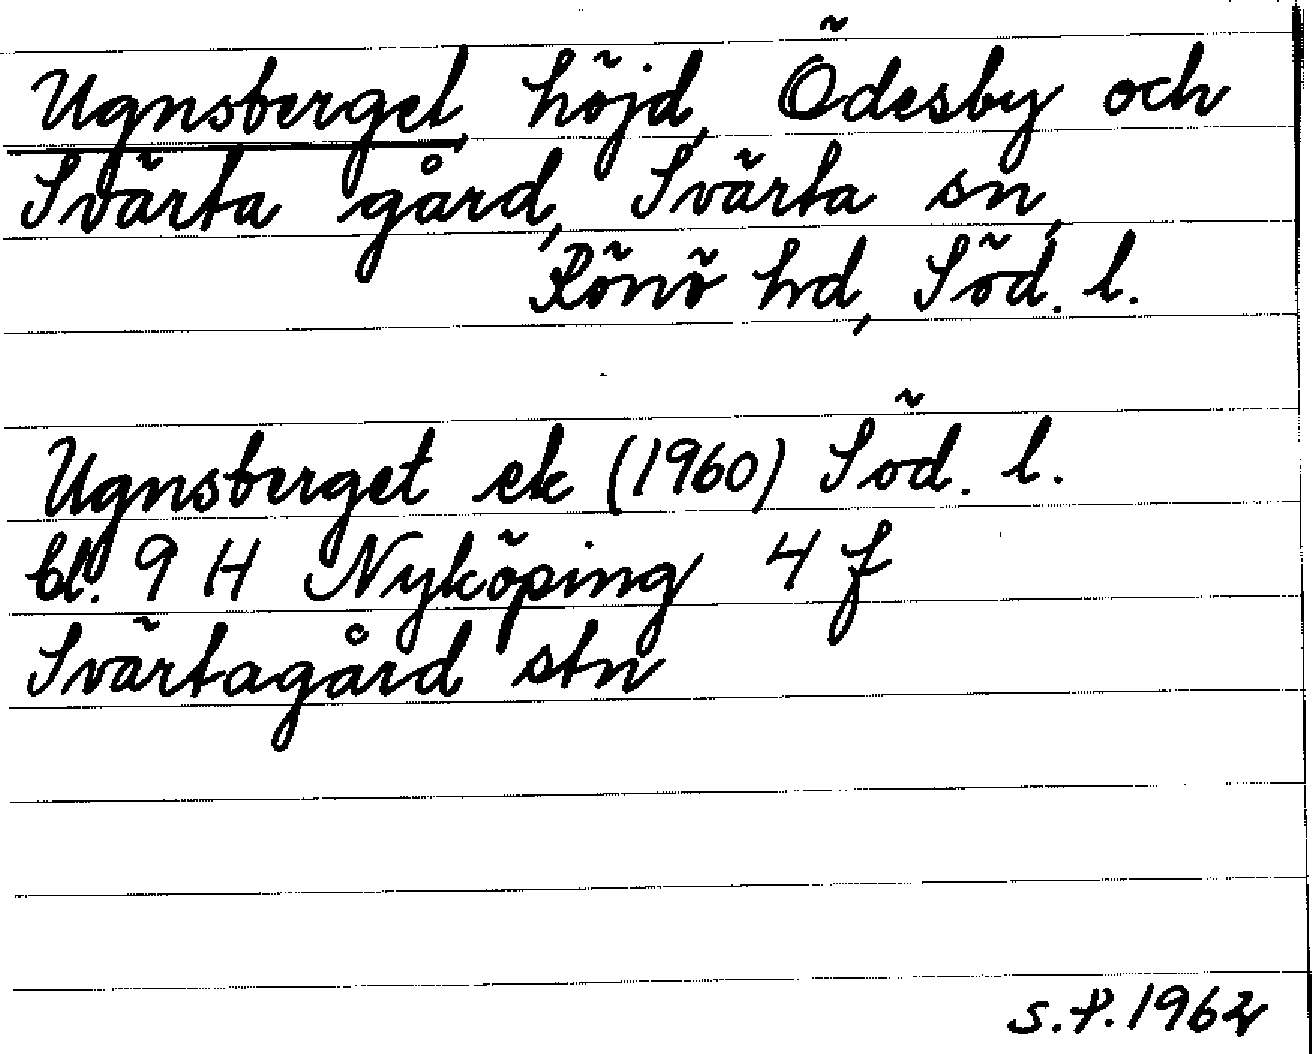 Ugnsberget, höjd, Ödesby och
Svärta gård, Svärta sn,
Rönö hd, Söd. l.
Ugnsberget ek (1960) Söd. l.
bl. 9 H Nyköping 4 f
Svärtagård stn
S.P. 1962